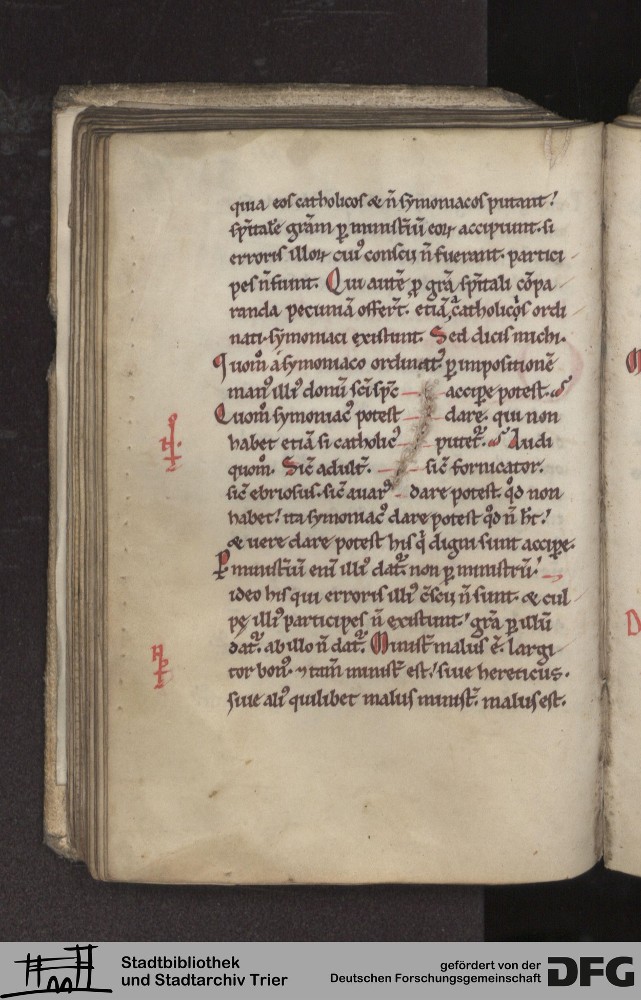 quia eos catholicos & n̄ symoniacos putant!
sp̄itale grām ꝑ ministr̄iū eoꝝ accipiunt. si
erroris illoꝝ cui᷒ conscii n̄ fuerant. partici
pes n̄ fiunt. Qui autē ꝓ grā sp̄itali cōpa
randa pecuniā offert̄. etiā a catholicis ordi
nati. symoniaci existunt. Sed dicis michi.
Quom̄ a symoniaco ordinat᷒ ꝑ impositionē
man᷒ illi᷒ donū sc̄i sp̄c accipe potest.
Quom̄ symoniac᷒ potest dare. qui non
habet etiā si catholic᷒ putet᷑. Audi
quom̄. Sic̄ adult̄. sic̄ fornicator.
sic̄ ebriosus. sic̄ auar᷒ dare potest. qd̄ non
habet! ita symoniac᷒ dare potest qd̄ n̄ ht̄!
& uere dare potest his q̇ digni sunt accipe.
Ꝑ ministr̄iū eni illi᷒ dat᷑ non ꝑ ministrū!
ideo his qui erroris illi᷒ c̄scii n̄ sunt. & cul
pę illi᷒ participes n̄ existunt! grā ꝑ illū
dat᷑. ab illo n̄ dat᷑. Minist̄ malus ē. largi
tor bon᷒. ⁊ tam̄ minist̄ est! siue hereticus.
siue ali᷒ quilibet malus minist̄. malus est.
Stadtbibliothek
und Stadtarchiv Trier
gefördert von der
Deutschen Forschungsgemeinschaft
DFG